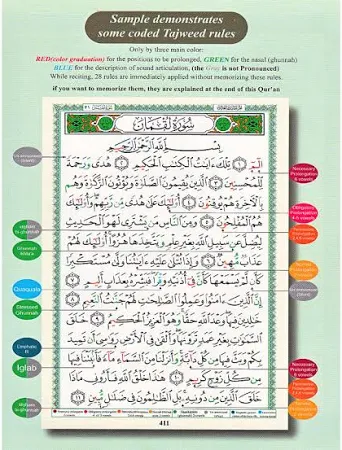 Sample demonstrates
some coded Tajweed rules
Only by three main color:
RED(color graduation) for the positions to be prolonged, GREEN for the nasal (ghunnah)
BLUE for the description of sound articulation, (the Gray is not Pronounced)
While reciting, 28 rules are immediately applied without memorizing these rules.
if you want to memorize them, they are explained at the end of this Qur'an
سُورَةُ لُقْمَان
بِسْمِ اللَّهِ الرَّحْمَٰنِ الرَّحِيمِ
الٓمٓ ١ تِلْكَ ءَايَٰتُ الْكِتَٰبِ الْحَكِيمِ ٢ هُدًى وَرَحْمَةً
لِّلْمُحْسِنِينَ ٣ الَّذِينَ يُقِيمُونَ الصَّلَوٰةَ وَيُؤْتُونَ الزَّكَوٰةَ وَهُم
بِالْآخِرَةِ هُمْ يُوقِنُونَ ٤ أُولَٰئِكَ عَلَىٰ هُدًى مِّن رَّبِّهِمْ وَأُولَٰئِكَ
هُمُ الْمُفْلِحُونَ ٥ وَمِنَ النَّاسِ مَن يَشْتَرِي لَهْوَ الْحَدِيثِ
لِيُضِلَّ عَن سَبِيلِ اللَّهِ بِغَيْرِ عِلْمٍ وَيَتَّخِذَهَا هُزُوًا أُولَٰئِكَ لَهُمْ
عَذَابٌ مُّهِينٌ ٦ وَإِذَا تُتْلَىٰ عَلَيْهِ ءَايَٰتُنَا وَلَّىٰ مُسْتَكْبِرًا
كَأَن لَّمْ يَسْمَعْهَا كَأَنَّ فِي أُذُنَيْهِ وَقْرًا فَبَشِّرْهُ بِعَذَابٍ أَلِيمٍ ٧
إِنَّ الَّذِينَ ءَامَنُوا وَعَمِلُوا الصَّٰلِحَٰتِ لَهُمْ جَنَّٰتُ النَّعِيمِ ٨
خَٰلِدِينَ فِيهَا وَعْدَ اللَّهِ حَقًّا وَهُوَ الْعَزِيزُ الْحَكِيمُ ٩ خَلَقَ
السَّمَٰوَٰتِ بِغَيْرِ عَمَدٍ تَرَوْنَهَا وَأَلْقَىٰ فِي الْأَرْضِ رَوَٰسِيَ أَن تَمِيدَ
بِكُمْ وَبَثَّ فِيهَا مِن كُلِّ دَابَّةٍ وَأَنزَلْنَا مِنَ السَّمَاءِ مَاءً فَأَنبَتْنَا فِيهَا
مِن كُلِّ زَوْجٍ كَرِيمٍ ١٠ هَٰذَا خَلْقُ اللَّهِ فَأَرُونِي مَاذَا
خَلَقَ الَّذِينَ مِن دُونِهِ بَلِ الظَّٰلِمُونَ فِي ضَلَٰلٍ مُّبِينٍ ١١
Necessary
Prolongation
6 vowels
Obligatory
Prolongation
Qualquala
Emphatic
R
Iqlab
Necessary
Prolongation
6 vowels
411